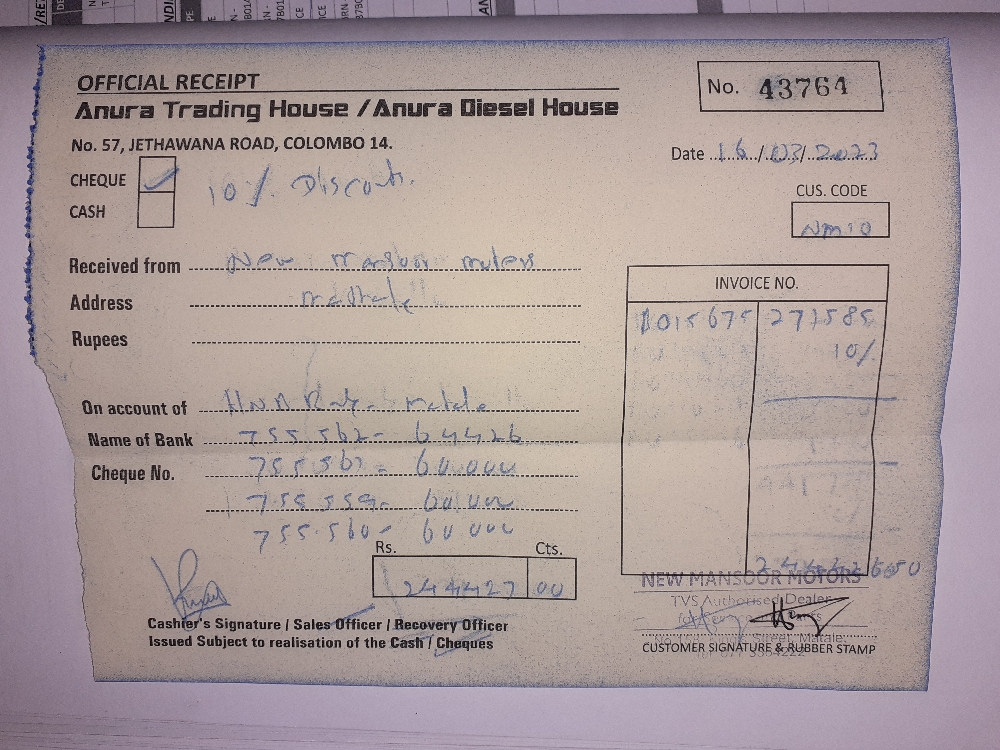 OFFICIAL RECEIPT
No. 43764
Anura Trading House / Anura Diesel House
No. 57, JETHAWANA ROAD, COLOMBO 14.
Date 16/03/2023
CHEQUE
10% Discount.
CASH
CUS. CODE
NM10
Received from New mansoor motors
Address matale
Rupees
INVOICE NO.
1015675 271585
10%
On account of HNB Bank - matale
Name of Bank 755 562 - 64426
Cheque No. 755 561 - 60 000
755 559 - 60 000
755 560 - 60 000
Rs. Cts.
244427 00
NEW MANSOOR MOTORS
TVS Authorised Dealer
Street, Matale.
Cashier's Signature / Sales Officer / Recovery Officer
Issued Subject to realisation of the Cash / Cheques
CUSTOMER SIGNATURE & RUBBER STAMP